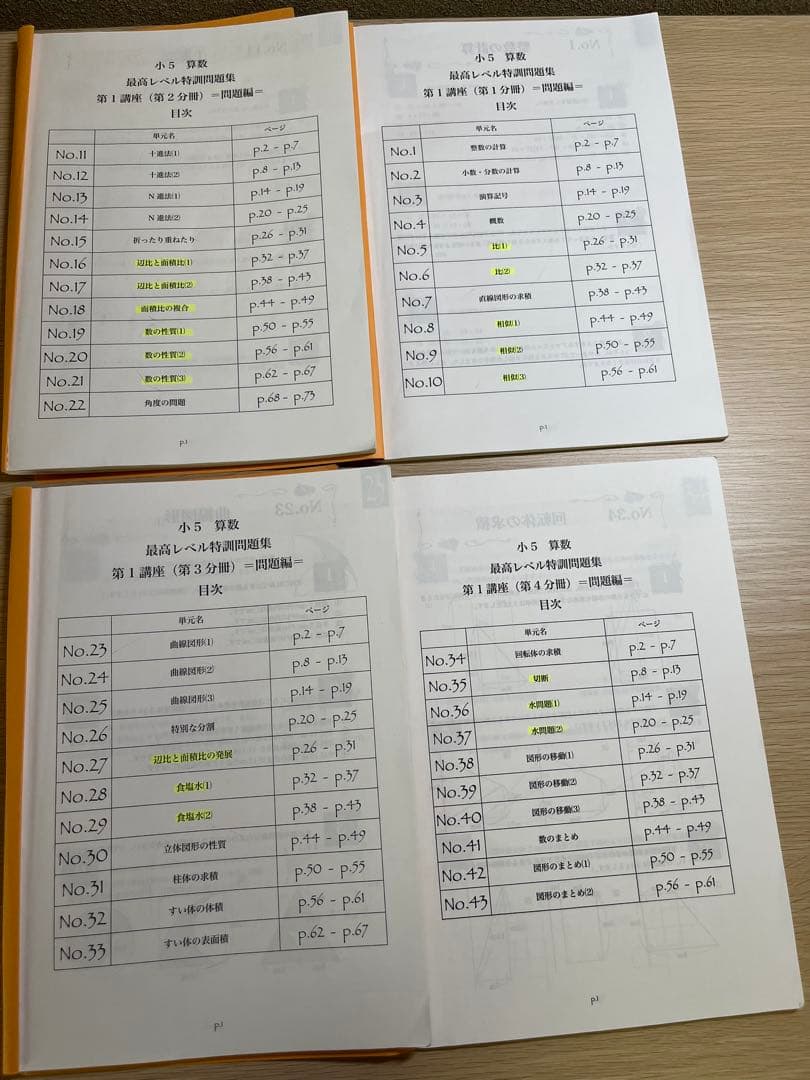 小5 算数
最高レベル特訓問題集
第1講座(第2分冊)=問題編=
目次
単元名 ページ
No.11 十進法(1) p.2 - p.7
No.12 十進法(2) p.8 - p.13
No.13 N進法(1) p.14 - p.19
No.14 N進法(2) p.20 - p.25
No.15 折ったり重ねたり p.26 - p.31
No.16 辺比と面積比(1) p.32 - p.37
No.17 辺比と面積比(2) p.38 - p.43
No.18 面積比の複合 p.44 - p.49
No.19 数の性質(1) p.50 - p.55
No.20 数の性質(2) p.56 - p.61
No.21 数の性質(3) p.62 - p.67
No.22 角度の問題 p.68 - p.73
p.1
小5 算数
最高レベル特訓問題集
第1講座(第1分冊)=問題編=
目次
単元名 ページ
No.1 整数の計算 p.2 - p.7
No.2 小数・分数の計算 p.8 - p.13
No.3 演算記号 p.14 - p.19
No.4 概数 p.20 - p.25
No.5 比(1) p.26 - p.31
No.6 比(2) p.32 - p.37
No.7 直線図形の求積 p.38 - p.43
No.8 相似(1) p.44 - p.49
No.9 相似(2) p.50 - p.55
No.10 相似(3) p.56 - p.61
p.1
No.23 曲線図形
小5 算数
最高レベル特訓問題集
第1講座(第3分冊)=問題編=
目次
単元名 ページ
No.23 曲線図形(1) p.2 - p.7
No.24 曲線図形(2) p.8 - p.13
No.25 曲線図形(3) p.14 - p.19
No.26 特別な分割 p.20 - p.25
No.27 辺比と面積比の発展 p.26 - p.31
No.28 食塩水(1) p.32 - p.37
No.29 食塩水(2) p.38 - p.43
No.30 立体図形の性質 p.44 - p.49
No.31 柱体の求積 p.50 - p.55
No.32 すい体の体積 p.56 - p.61
No.33 すい体の表面積 p.62 - p.67
p.1
No.34 回転体の求積
小5 算数
最高レベル特訓問題集
第1講座(第4分冊)=問題編=
目次
単元名 ページ
No.34 回転体の求積 p.2 - p.7
No.35 切断 p.8 - p.13
No.36 水問題(1) p.14 - p.19
No.37 水問題(2) p.20 - p.25
No.38 図形の移動(1) p.26 - p.31
No.39 図形の移動(2) p.32 - p.37
No.40 図形の移動(3) p.38 - p.43
No.41 数のまとめ p.44 - p.49
No.42 図形のまとめ(1) p.50 - p.55
No.43 図形のまとめ(2) p.56 - p.61
p.1